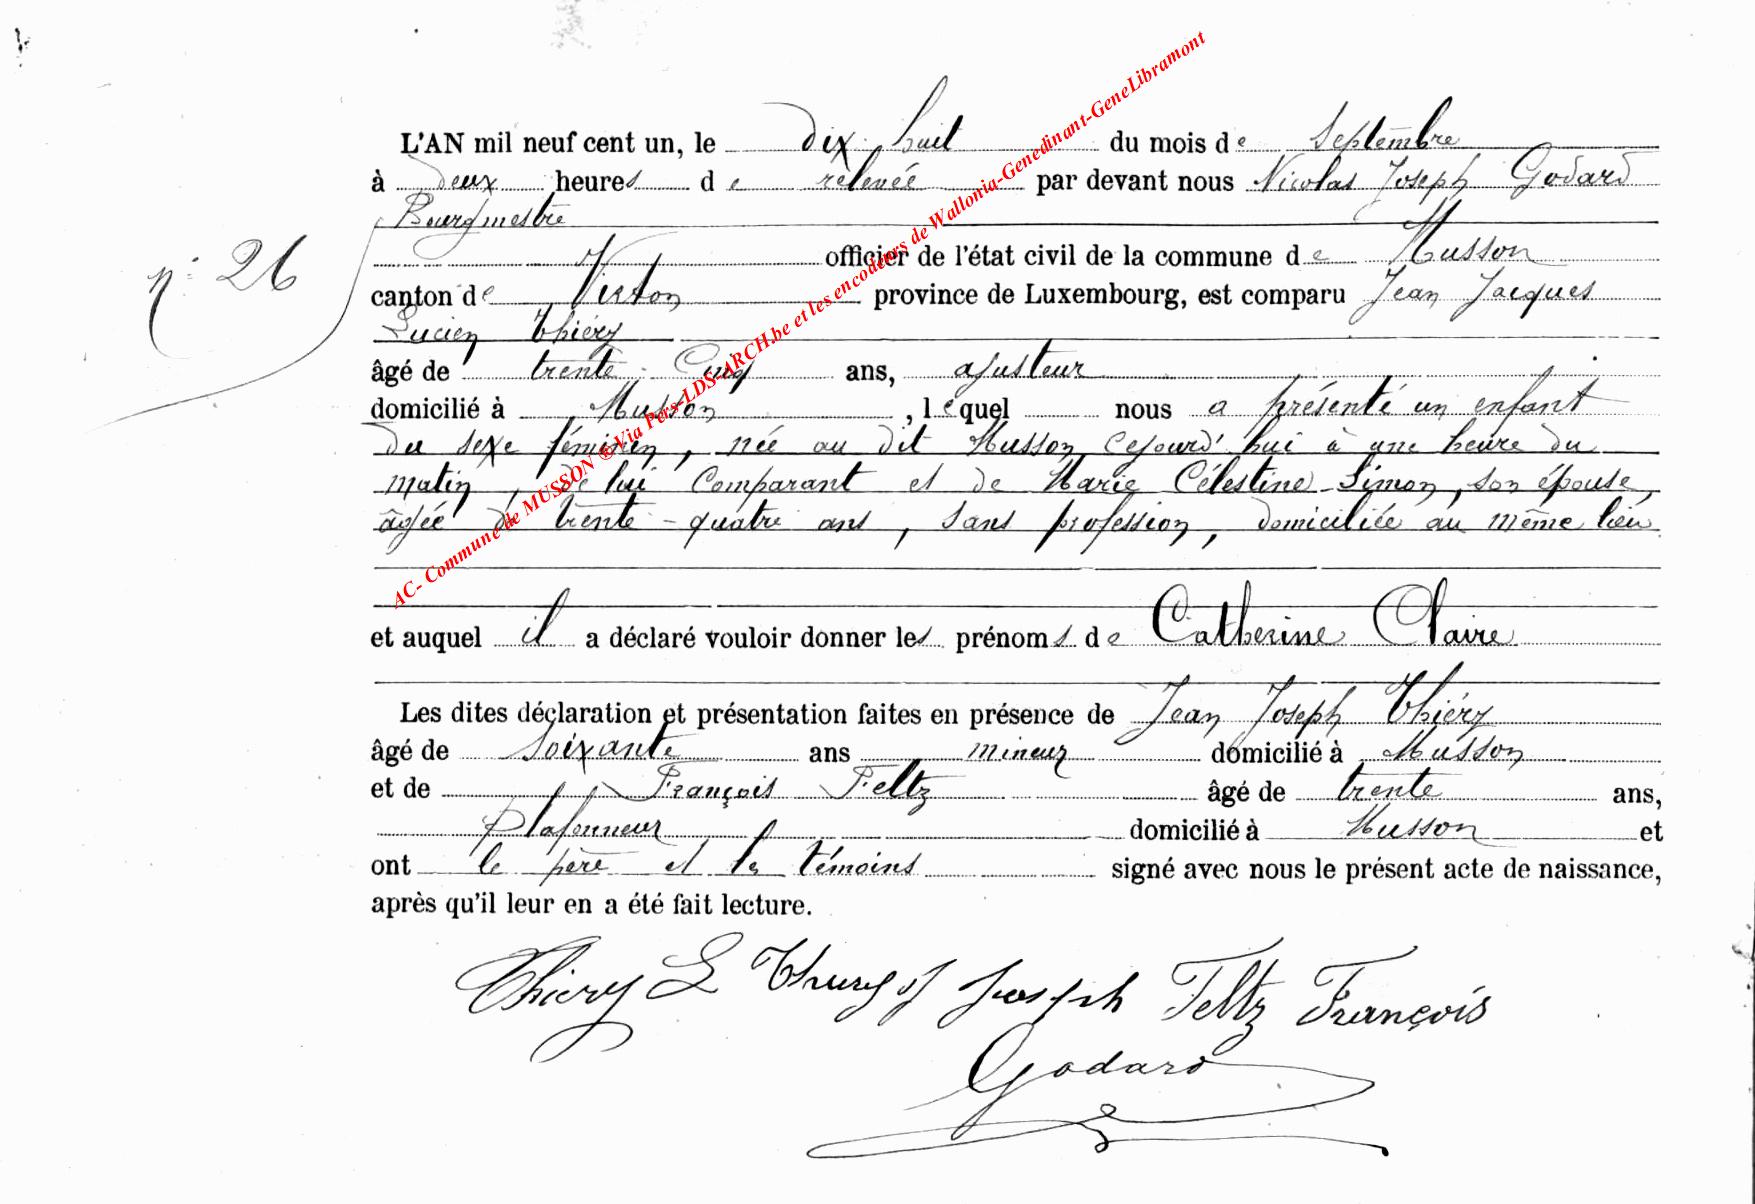 L'AN mil neuf cent un, le dix-huit du mois de Septembre
à deux heures de relevée par devant nous Nicolas Joseph Godard
Bourgmestre
n° 26
officier de l'état civil de la commune de Musson
canton de Virton province de Luxembourg, est comparu Jean Jacques
Lucien Thiéry
âgé de trente-cinq ans, ajusteur
domicilié à Musson, lequel nous a présenté un enfant
du sexe féminin, née au dit Musson cejourd'hui à une heure du
matin, de lui comparant et de Marie Célestine Simon, son épouse,
âgée de trente-quatre ans, sans profession, domiciliée au même lieu
et auquel il a déclaré vouloir donner les prénoms de Catherine Claire
Les dites déclaration et présentation faites en présence de Jean Joseph Thiéry
âgé de soixante ans mineur domicilié à Musson
et de François Feltz âgé de trente ans,
plafonneur domicilié à Musson et
ont le père et les témoins signé avec nous le présent acte de naissance,
après qu'il leur en a été fait lecture.
Thiery L Thiery J Joseph Feltz François
Godard
AC- Commune de MUSSON ® Via Pers-LDS-ARCH.be et les encodeurs de Wallonia-Genedinant-GeneLibramont